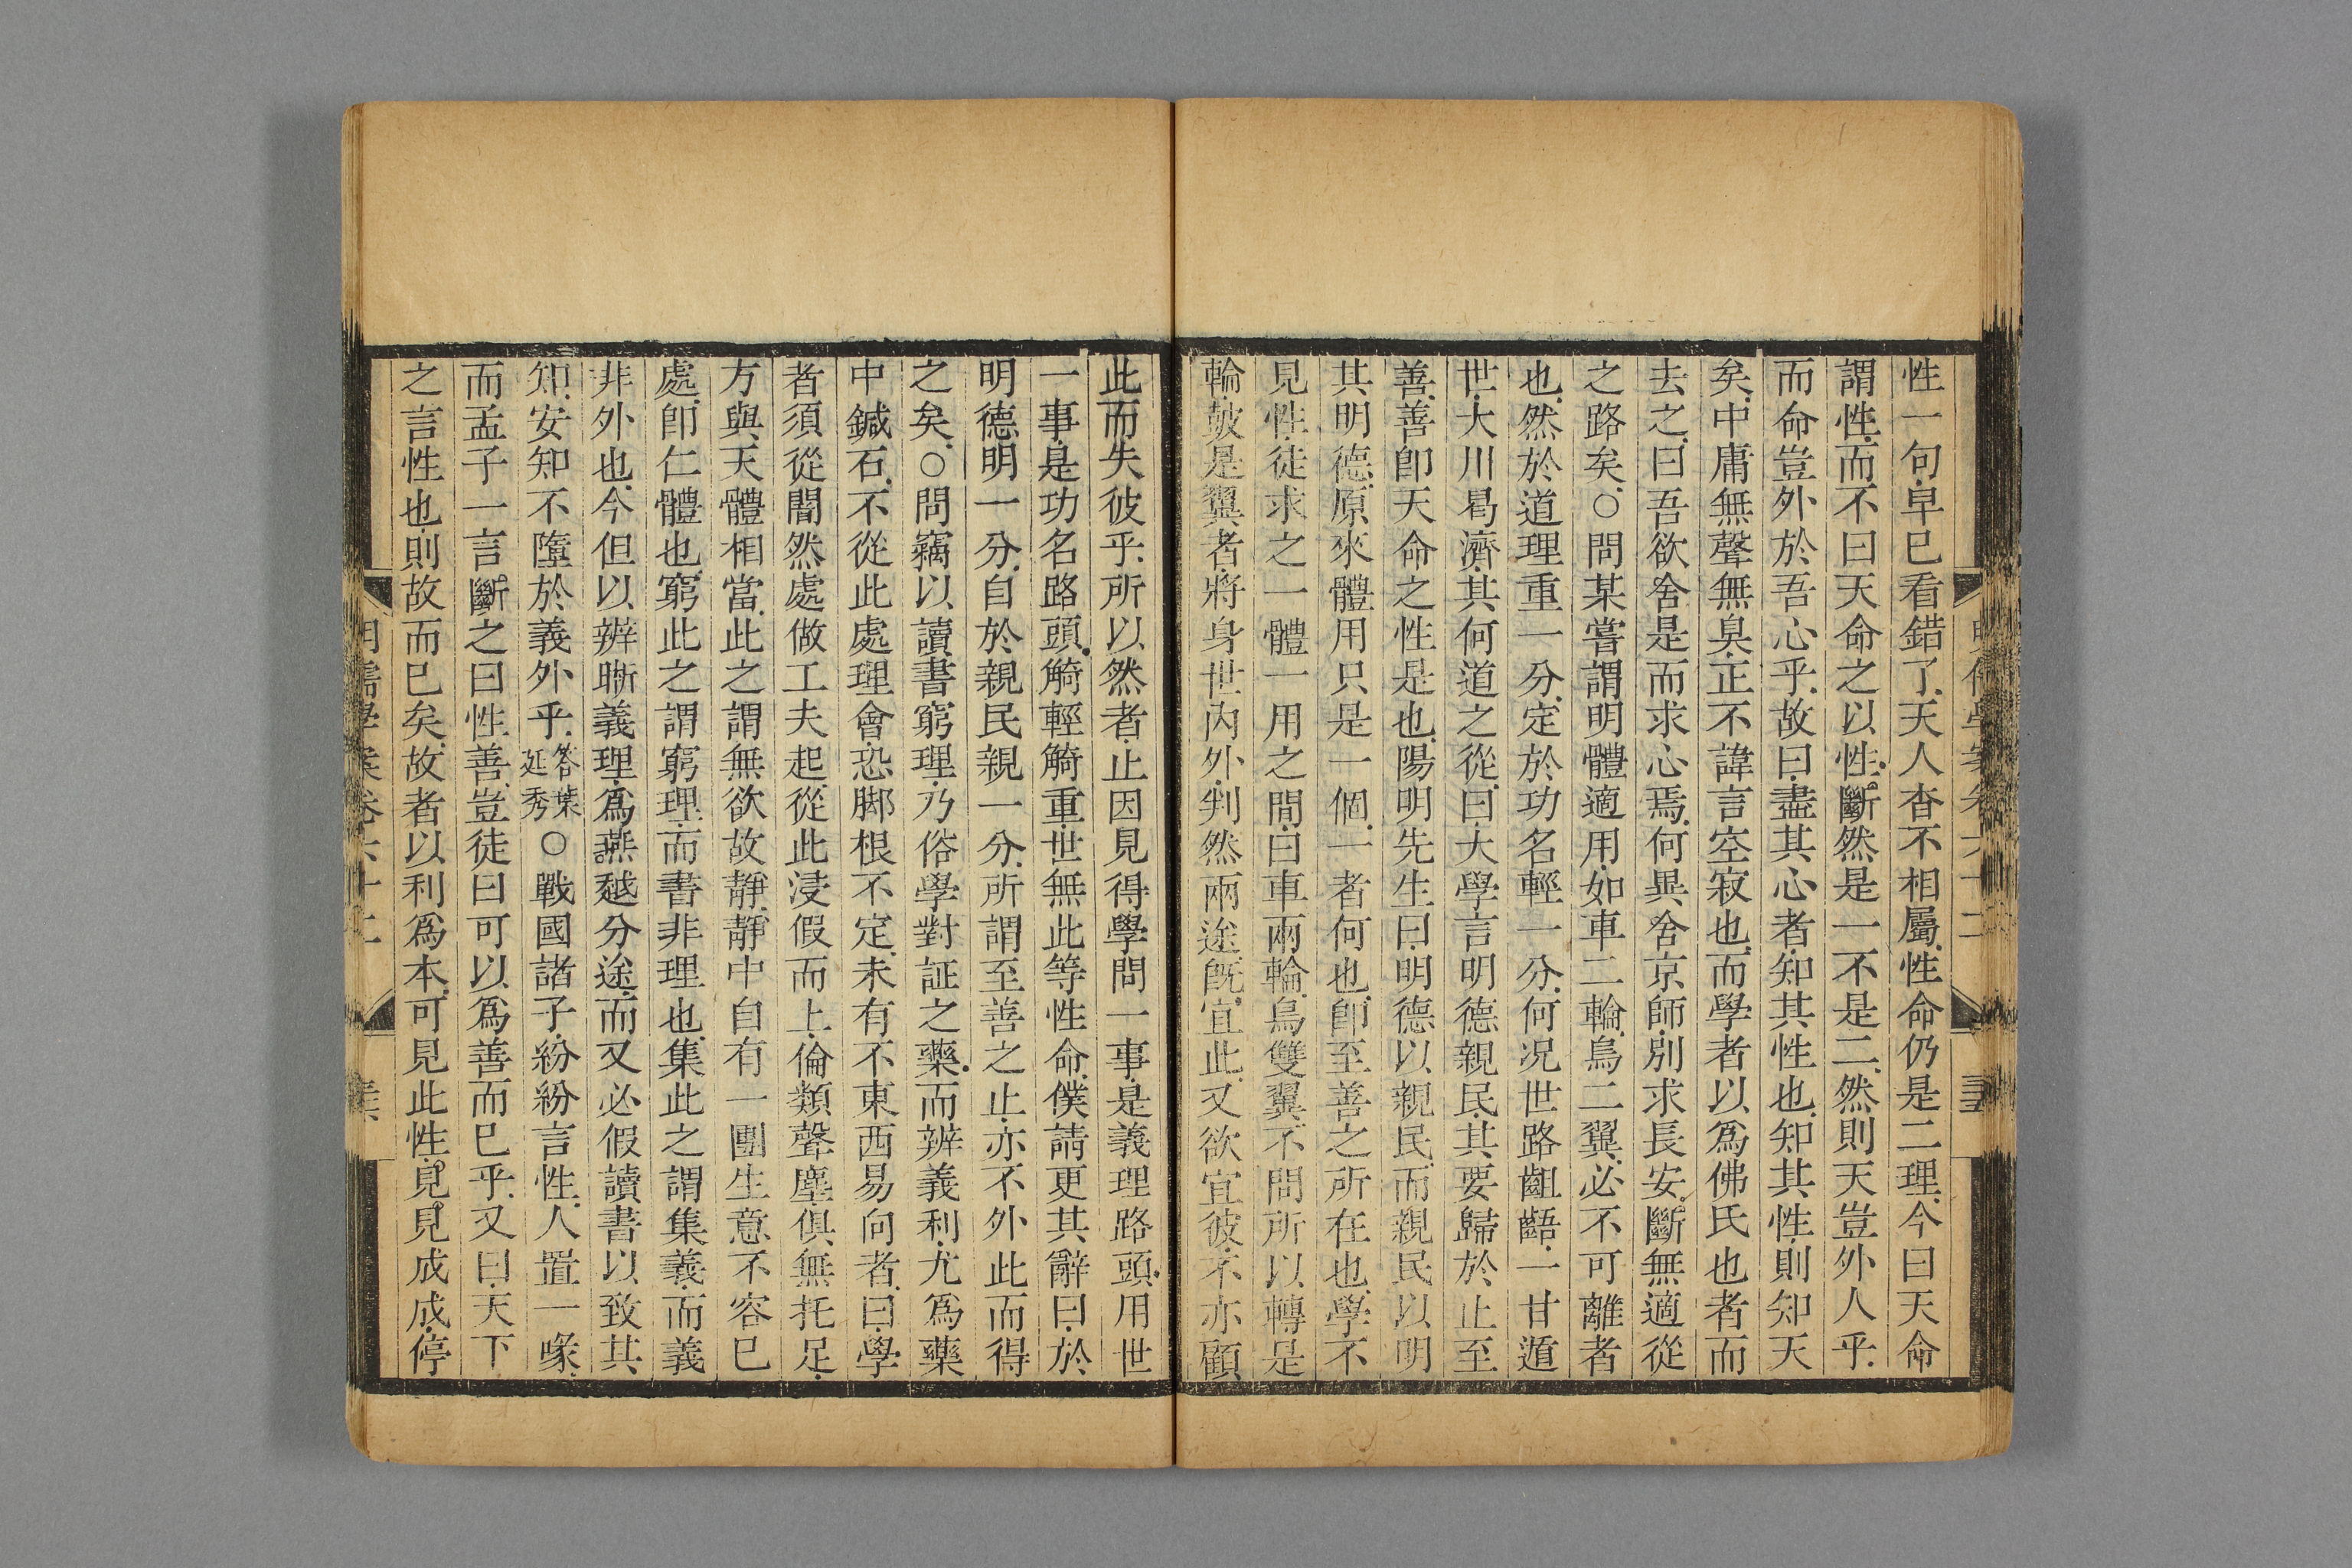 性一句早已看錯了天人杳不相屬性命仍是二理今曰天命
謂性而不曰天命之以性斷然是一不是二然則天豈外人乎
而命豈外於吾心乎故曰盡其心者知其性也知其性則知天
矣中庸無聲無臭正不諱言空寂也而學者以爲佛氏也者而
去之曰吾欲舍是而求心焉何異舍京師別求長安斷無適從
之路矣○問某嘗謂明體適用如車二輪鳥二翼必不可離者
也然於道理重一分定於功名輕一分何况世路齟齬一甘遁
世大川曷濟其何道之從曰大學言明德親民其要歸於止至
善善卽天命之性是也陽明先生曰明德以親民而親民以明
其明德原來體用只是一個一者何也卽至善之所在也學不
見性徒求之一體一用之間曰車兩輪鳥雙翼不問所以轉是
輪鼓是翼者將身世內外判然兩途旣宜此又欲宜彼不亦顧
此而失彼乎所以然者止因見得學問一事是義理路頭用世
一事是功名路頭觭輕觭重世無此等性命僕請更其辭曰於
明德明一分自於親民親一分所謂至善之止亦不外此而得
之矣○問竊以讀書窮理乃俗學對証之藥而辨義利尤爲藥
中鍼石不從此處理會恐脚根不定未有不東西易向者曰學
者須從闇然處做工夫起從此浸假而上倫類聲塵俱無托足
方與天體相當此之謂無欲故靜靜中自有一團生意不容已
處卽仁體也窮此之謂窮理而書非理也集此之謂集義而義
非外也今但以辨晰義理爲燕越分途而又必假讀書以致其
知安知不墮於義外乎答葉延秀○戰國諸子紛紛言性人置一喙
而孟子一言斷之曰性善豈徒曰可以爲善而已乎又曰天下
之言性也則故而已矣故者以利爲本可見此性見見成成停
明儒學案卷六十二